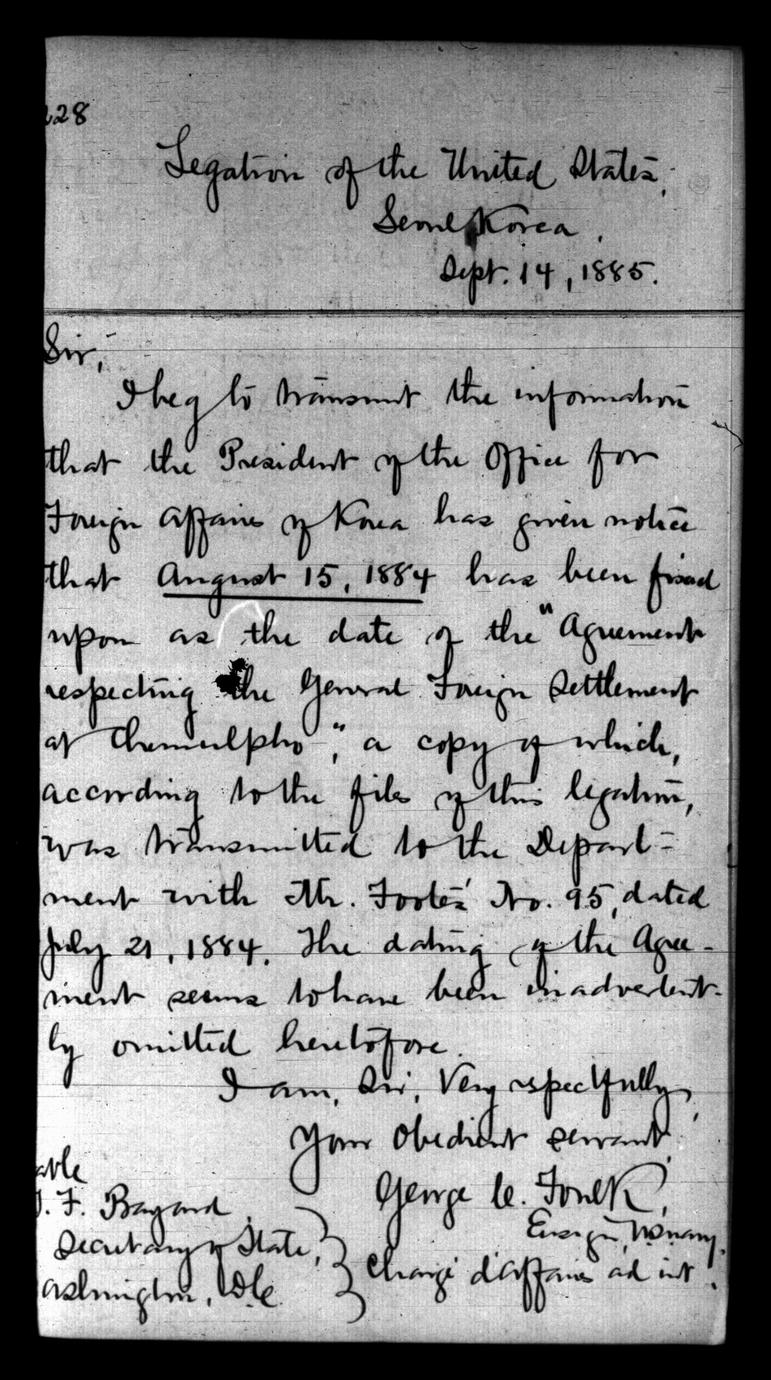 228
Legation of the United States,
Seoul, Korea,
Sept. 14, 1885.
Sir,
I beg to transmit the information
that the President of the Office for
Foreign Affairs of Korea has given notice
that August 15, 1884 has been fixed
upon as the date of the "Agreement
respecting the General Foreign Settlement
at Chemulpho", a copy of which,
according to the files of this legation,
was transmitted to the Depart=
ment with Mr. Foote's No. 95, dated
July 21, 1884. The dating of the Agree-
ment seems to have been inadvertent-
ly omitted heretofore.
I am, Sir, Very respectfully,
Your obedient servant,
George C. Foulk,
Ensign, U.S. Navy,
Chargé d'Affaires ad int.
able
T. F. Bayard,
Secretary of State,
ashington, D.C.